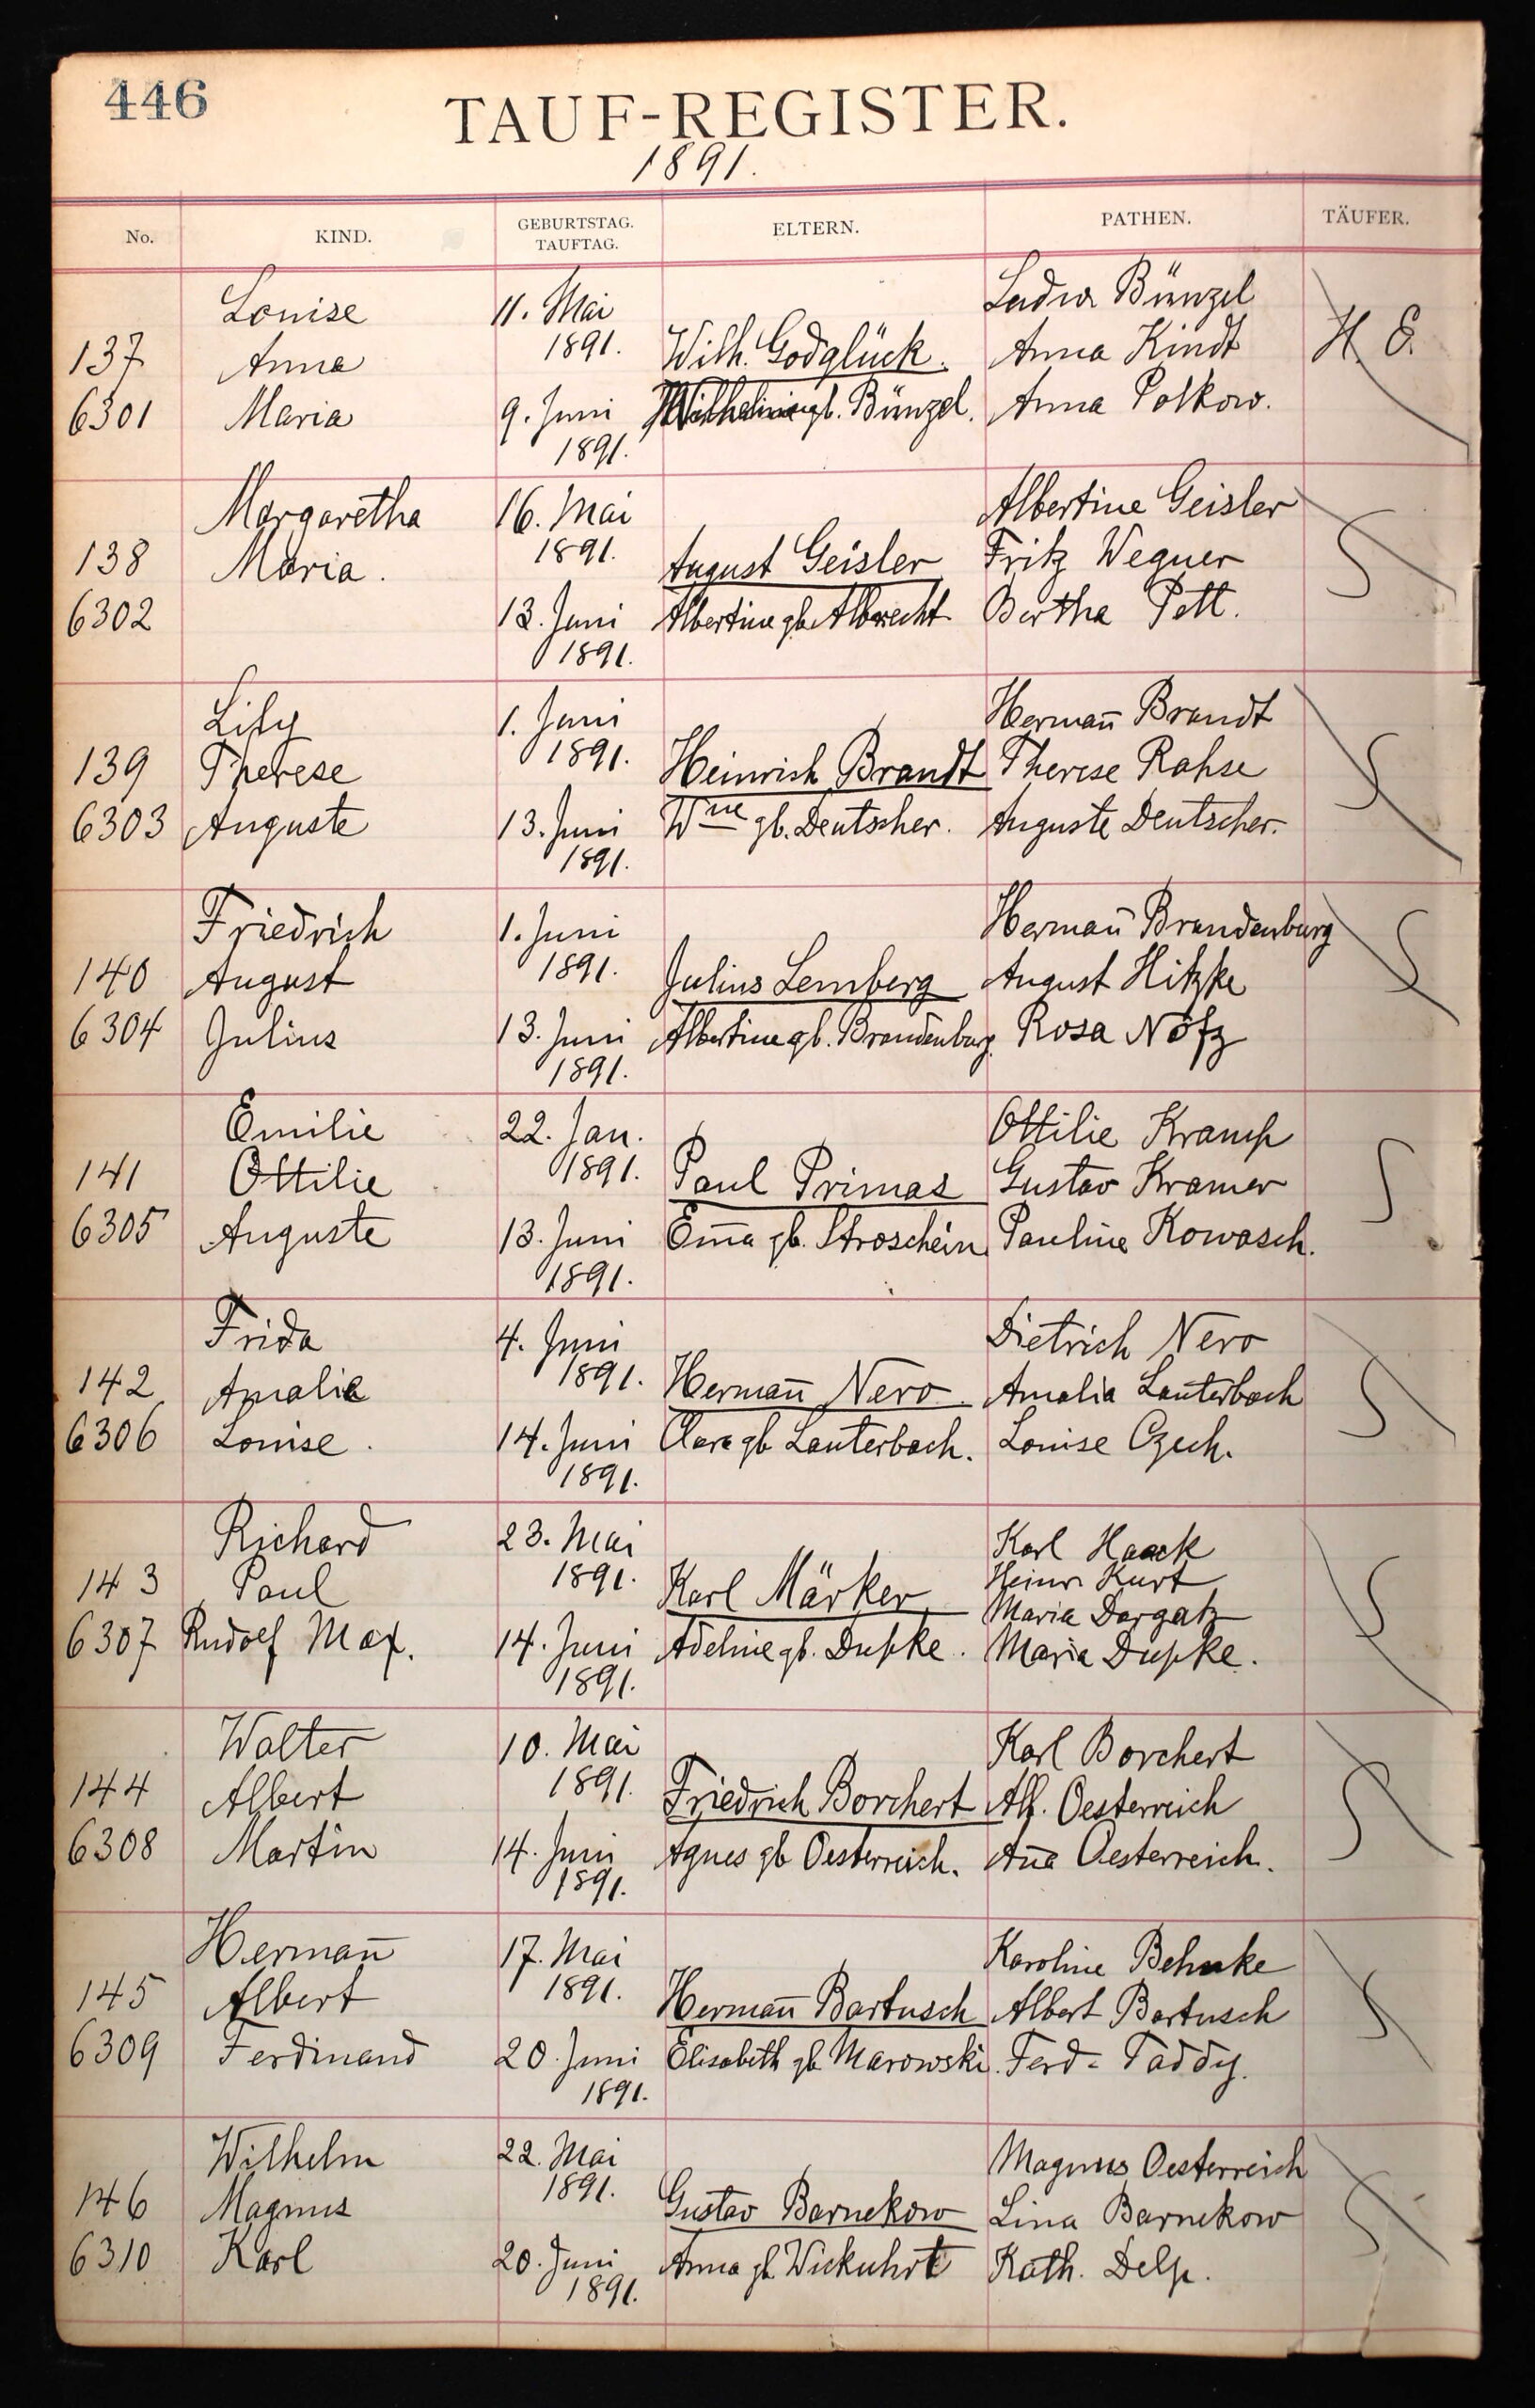 446
TAUF-REGISTER.
1891.
No. KIND. GEBURTSTAG. TAUFTAG. ELTERN. PATHEN. TÄUFER.
Louise 11. Mai Ludw. Bünzel
137 Anna 1891. Wilh. Godglück. Anna Kindt H. E.
6301 Maria 9. Juni Wilhelmine gb. Bünzel. Anna Polkow.
1891.
Margaretha 16. Mai Albertine Geisler
138 Maria. 1891. August Geisler Fritz Wegner S
6302 13. Juni Albertine gb. Albrecht Bertha Pett.
1891.
Lily 1. Juni Hermañ Brandt
139 Therese 1891. Heinrich Brandt Therese Rahse S
6303 Auguste 13. Juni Wne gb. Deutscher. Auguste Deutscher.
1891.
Friedrich 1. Juni Hermañ Brandenburg
140 August 1891. Julius Lemberg August Hitzke S
6304 Julius 13. Juni Albertine gb. Brandenburg. Rosa Nötz
1891.
Emilie 22. Jan. Ottilie Kramp
141 Ottilie 1891. Paul Primas Gustav Kramer S
6305 Auguste 13. Juni Em̄a gb. Stroschein Pauline Kowasch.
1891.
Frida 4. Juni Dietrich Nero
142 Amalie 1891. Hermañ Nero. Amalia Lauterbach S
6306 Louise. 14. Juni Clara gb Lauterbach. Louise Czech.
1891.
Richard 23. Mai Karl Haack
143 Paul 1891. Karl Märker Heinr. Kurt S
Maria Dargatz
6307 Rudolf Max. 14. Juni Adeline gb. Dupke. Maria Dupke.
1891.
Walter 10. Mai Karl Borchert
144 Albert 1891. Friedrich Borchert Alb. Oesterreich S
6308 Martin 14. Juni Agnes gb Oesterreich. Añа Oesterreich.
1891.
Hermañ 17. Mai Karoline Behnke
145 Albert 1891. Hermañ Bartusch Albert Bartusch S
6309 Ferdinand 20. Juni Elisabeth gb Marowski. Ferd. Taddy.
1891.
Wilhelm 22. Mai Magnus Oesterreich
146 Magnus 1891. Gustav Barnekow Lina Barnekow S
6310 Karl 20. Juni Anna gb Wickuhrt Kath. Delp.
1891.